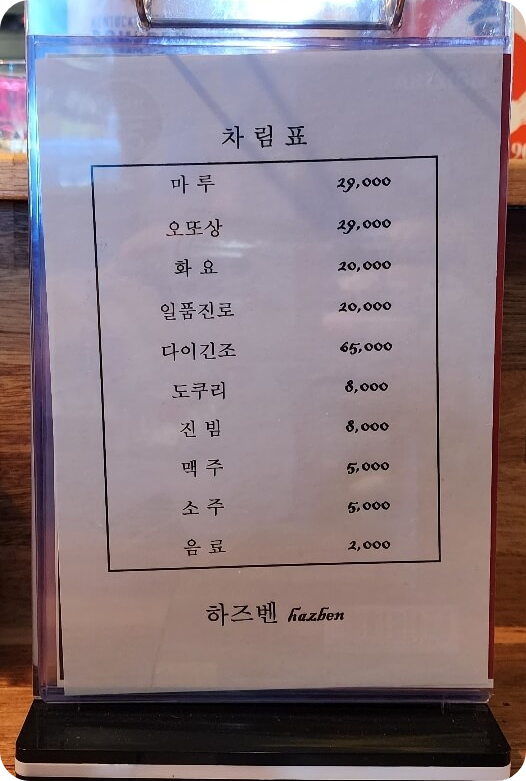 차림표
마루 29,000
오또상 29,000
화요 20,000
일품진로 20,000
다이긴조 65,000
도쿠리 8,000
진빔 8,000
맥주 5,000
소주 5,000
음료 2,000
하즈벤 hazben